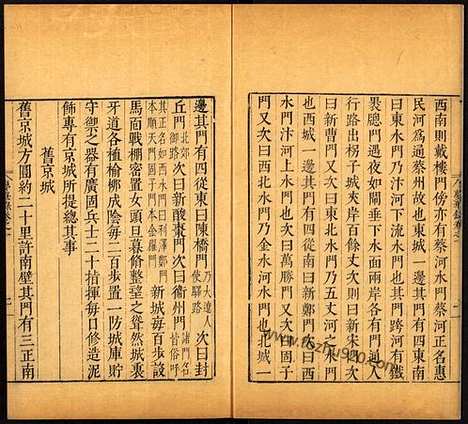 西南則戴樓門傍亦有蔡河水門蔡河正名惠
民河為通蔡州故也東城一邊其門有四東南
曰東水門乃汴河下流水門也其門跨河有鐵
裹䆫門遇夜如閘垂下水面兩岸各有門通人
行路出拐子城夾岸百餘丈次則曰新宋門次
曰新曹門又次曰東北水門乃五丈河之水門
也西城一邊其門有四從南曰新鄭門次曰西
水門汴河上水門也次曰萬勝門又次曰固子
門又次曰西北水門乃金水河水門也北城一
邊其門有四從東曰陳橋門乃大遼人使驛路次曰封
丘門北郊御路次曰新酸棗門次曰衞州門諸門名皆俗呼
其正名如西水門曰利澤鄭門本順天門固子門本金耀門新城每百步設
馬面戰棚密置女頭旦暮修整望之聳然城裏
牙道各植榆柳成陰每二百步置一防城庫貯
守禦之器有廣固兵士二十指揮每日修造泥
飾專有京城所提總其事
舊京城
舊京城方圓約二十里許南壁其門有三正南